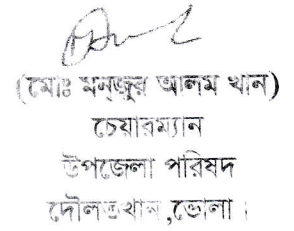 (মোঃ মনজুর আলম খান)
চেয়ারম্যান
উপজেলা পরিষদ
দৌলতখান,ভোলা।